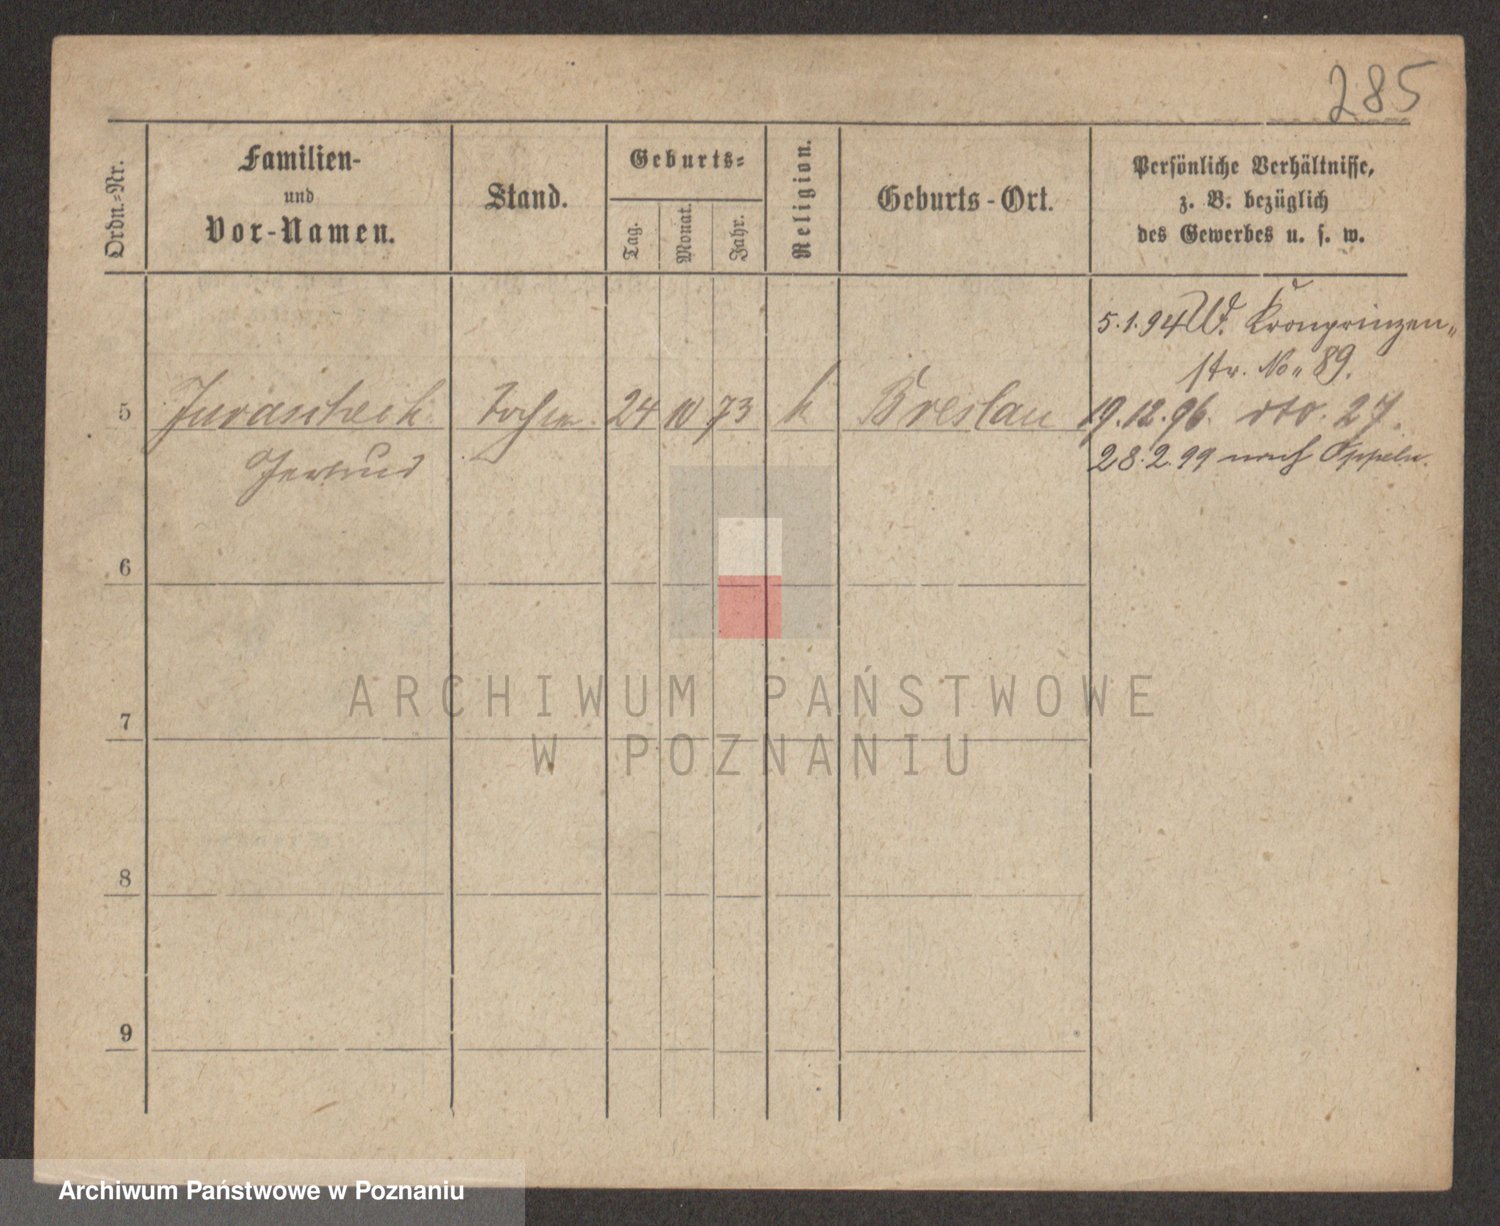 285
Ordn.-Nr.
Familien-
und
Vor-Namen.
Stand.
Geburts-
Tag.
Monat.
Jahr.
Religion.
Geburts-Ort.
Persönliche Verhältnisse,
z. B. bezüglich
des Gewerbes u. s. w.
5.1.94 W. Kronprinzen-
str. No. 89.
5 Juraschek Tochter 24 10 73 k Breslau 19.12.96. dto. 27.
Gertrud 28.2.99 nach Oppeln.
6
7
8
9
ARCHIWUM PAŃSTWOWE
W POZNANIU
Archiwum Państwowe w Poznaniu